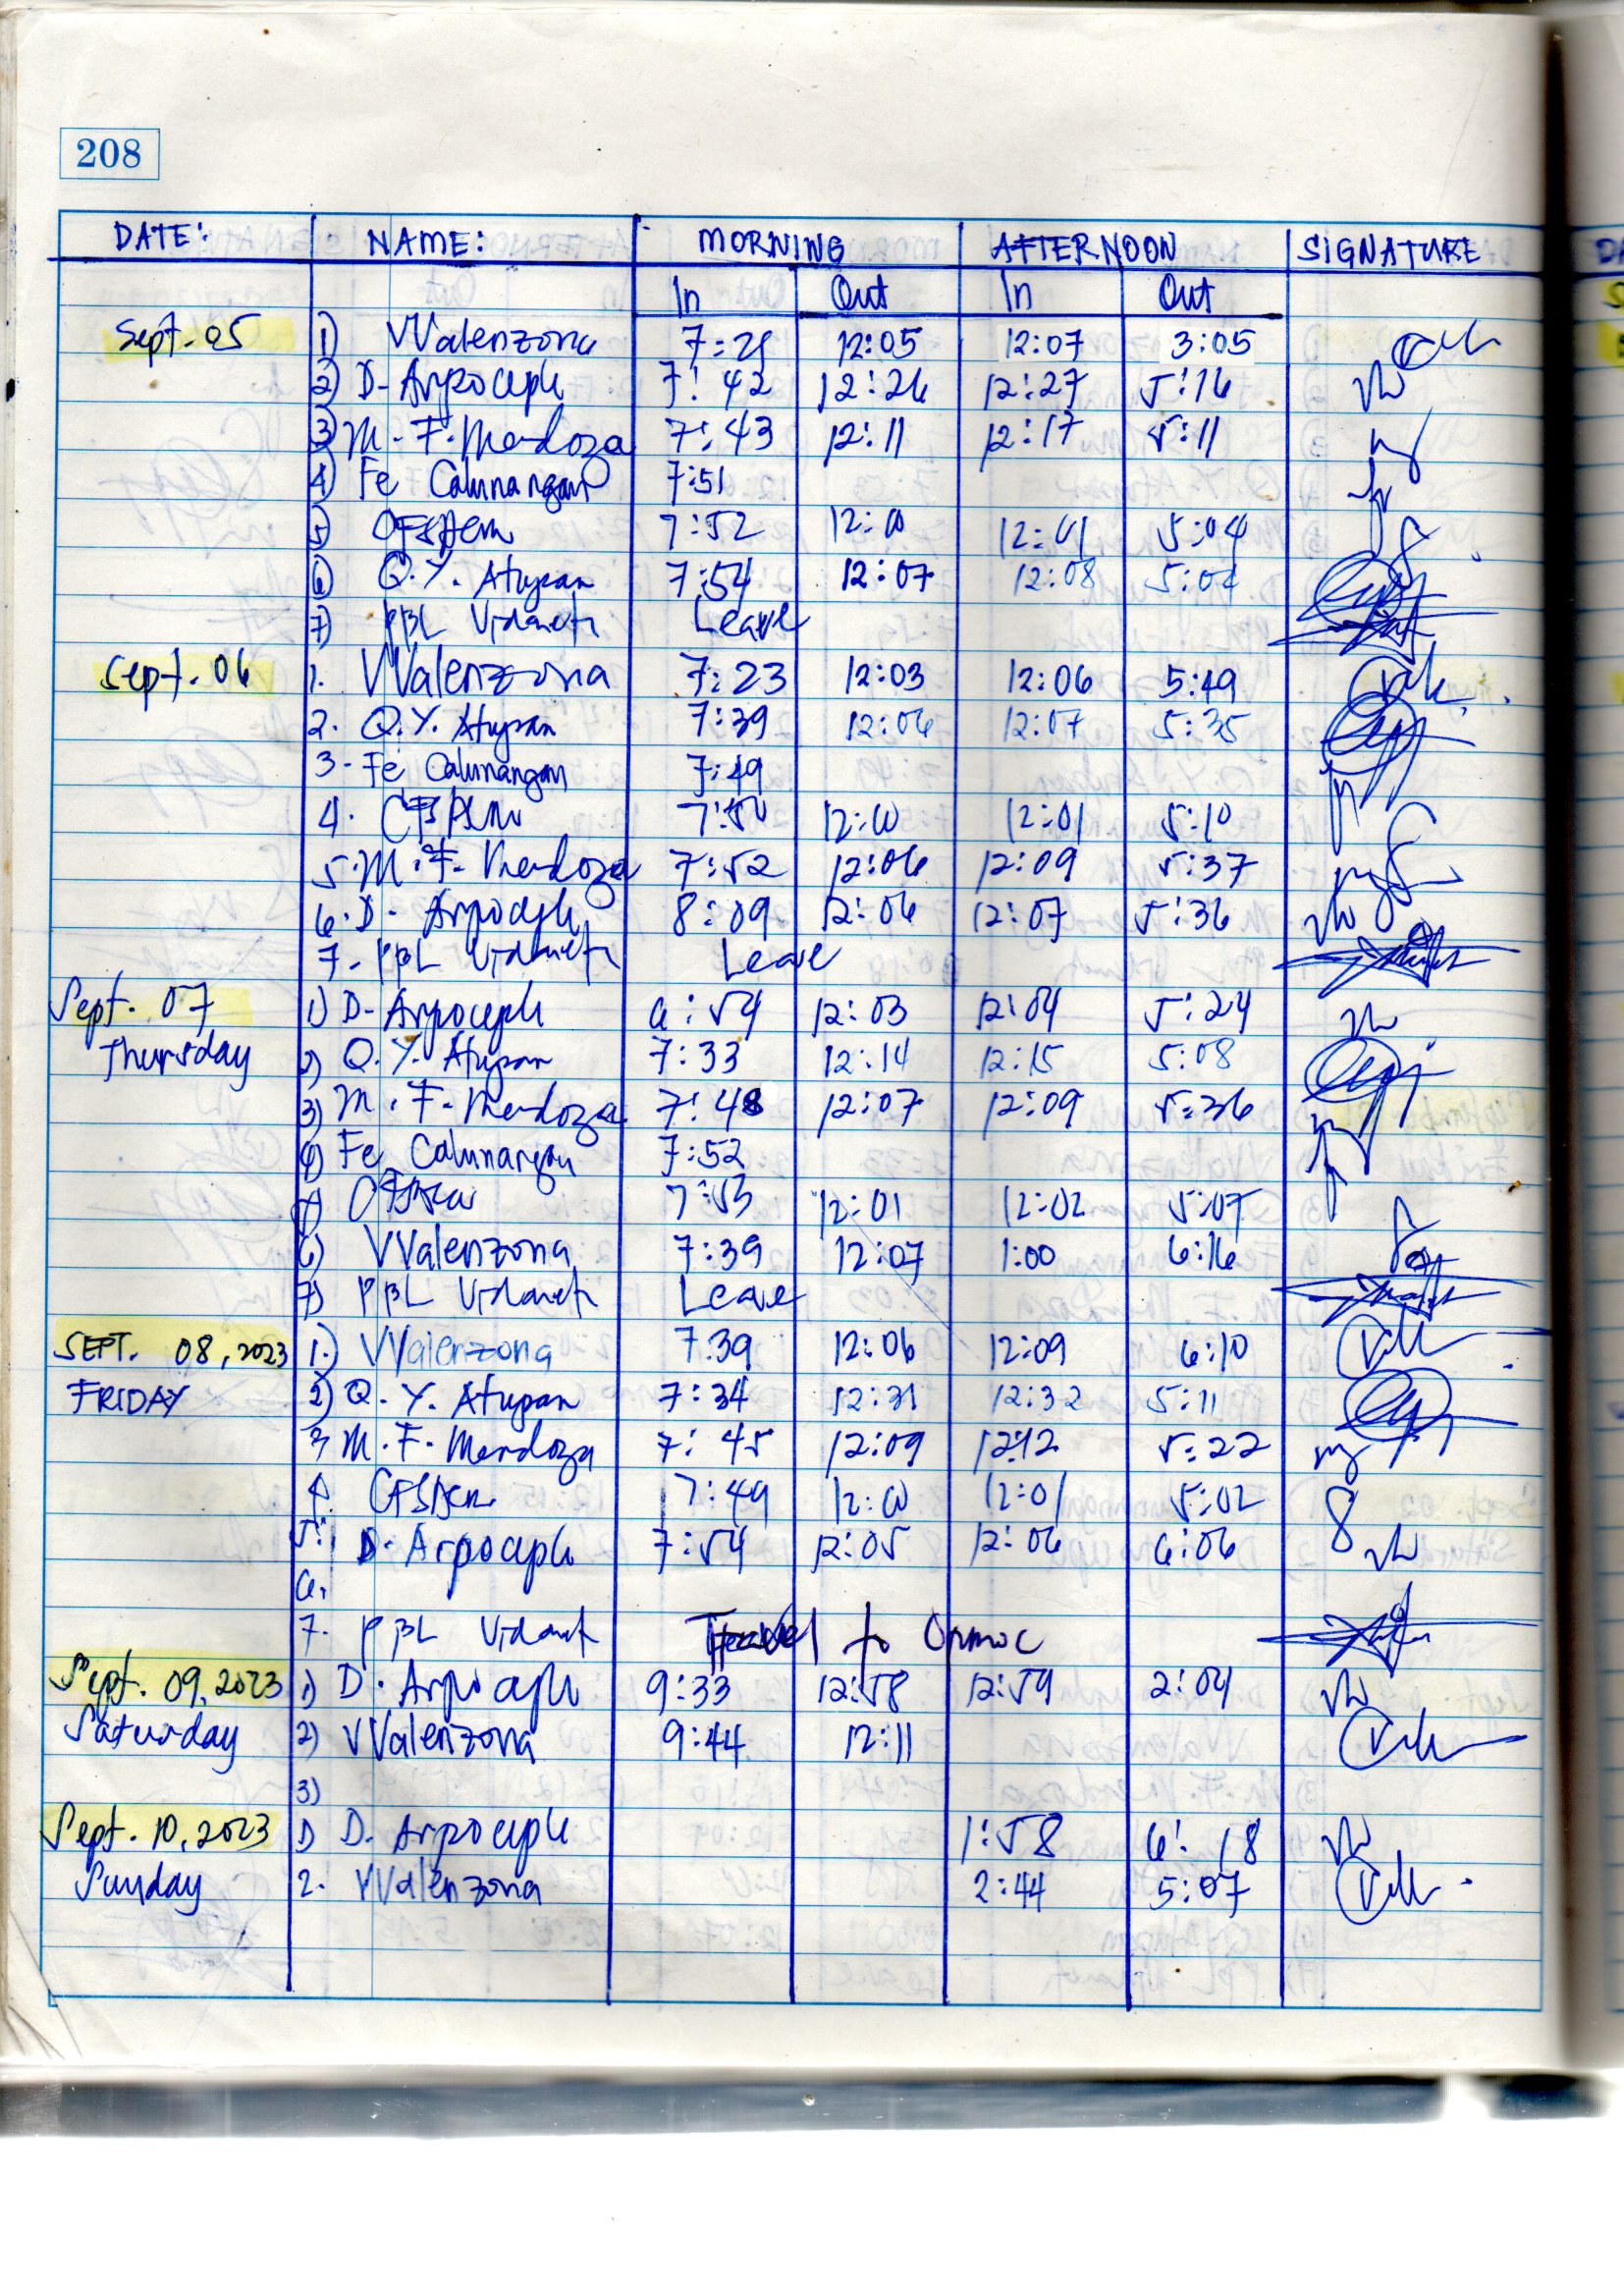 208
DATE: NAME: MORNING AFTERNOON SIGNATURE
In Out In Out
Sept. 05 1) VValenzona 7:29 12:05 12:07 3:05
2) D. Arpoceph 7:42 12:26 12:27 5:16
3) M. F. Mendoza 7:43 12:11 12:17 5:11
4) Fe Calunangan 7:51
5) 7:52 12:00 12:01 5:04
6) Q. Y. Atupan 7:54 12:07 12:08 5:04
7) PBL Leave
Sept. 06 1. VValenzona 7:23 12:03 12:06 5:49
2. Q. Y. Atupan 7:39 12:06 12:07 5:35
3- Fe Calunangan 7:49
4. 7:50 12:00 12:01 5:10
5. M. F. Mendoza 7:52 12:06 12:09 5:37
6. D. Arpoceph 8:09 12:06 12:07 5:36
7- PBL Leave
Sept. 07 1) D. Arpoceph 6:54 12:03 12:04 5:24
Thursday 2) Q. Y. Atupan 7:33 12:14 12:15 5:08
3) M. F. Mendoza 7:48 12:07 12:09 5:36
4) Fe Calunangan 7:52
5) 7:53 12:01 12:02 5:07
6) VValenzona 7:39 12:07 1:00 6:16
7) PBL Leave
SEPT. 08, 2023 1.) VValenzona 7:39 12:06 12:09 6:10
FRIDAY 2) Q. Y. Atupan 7:34 12:31 12:32 5:11
3 M. F. Mendoza 7:45 12:09 12:12 5:22
4. 7:49 12:00 12:01 5:02
5. D. Arpoceph 7:54 12:05 12:06 6:06
6.
7. PBL Travel to Ormoc
Sept. 09, 2023 1) D. Arpoceph 9:33 12:58 12:59 2:04
Saturday 2) VValenzona 9:44 12:11
3)
Sept. 10, 2023 1) D. Arpoceph 1:58 6:18
Sunday 2. VValenzona 2:44 5:07